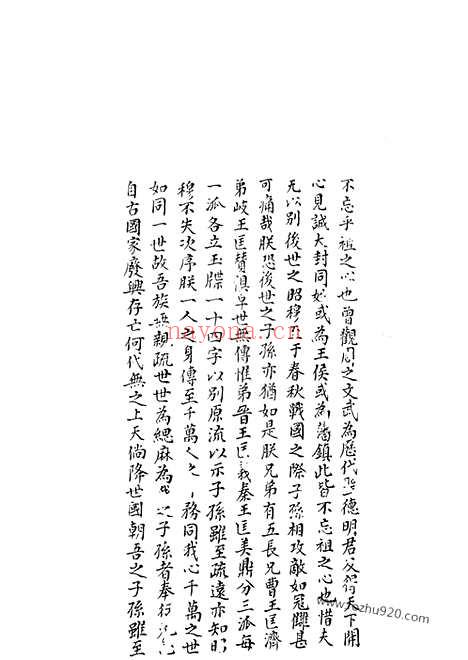 不忘乎祖之心也曾觀周之文武為歷代聖德明君父得天下開
心見誠大封同姓或為王侯或為藩鎮此皆不忘祖之心也惜夫
无以別後世之昭穆 于春秋戰國之際子孫相攻敵如冠讎甚
可痛哉朕恐後世之子孫亦猶如是朕兄弟有五長兄曹王匡濟
弟岐王匡贊俱早世無傳惟弟晉王匡義秦王匡美鼎分三派每
一派各立玉牒一十四字以別原流以示子孫雖至疏遠亦知昭
穆不失次序朕一人之身傳至千萬人之 務同我心千萬之世
如同一世故吾族無親疏世世為緦麻為 之子孫者奉行
自古國家廢興存亡何代無之上天倘降世國朝吾之子孫雖至
nayona.com
zhu920.com